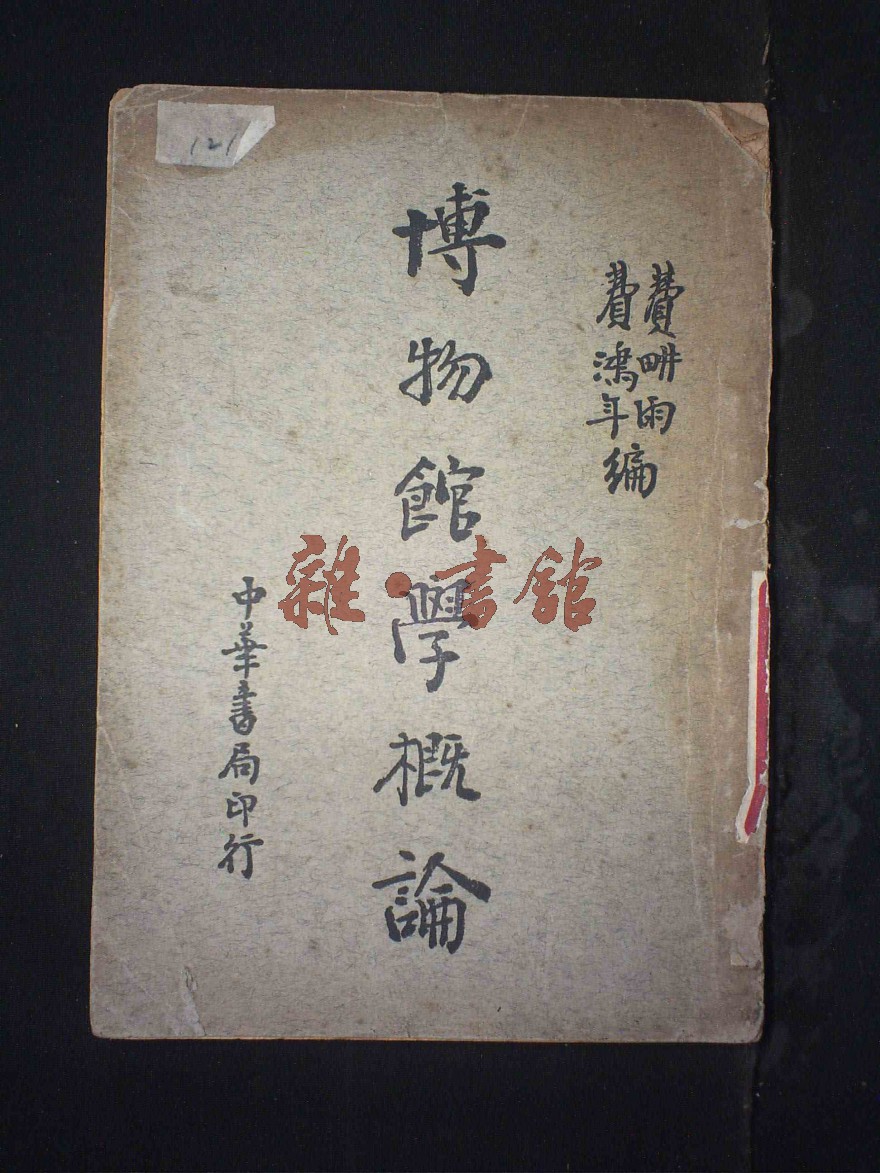 費畊雨
費鴻年編
博物館學概論
中華書局印行
雜·書舘
121